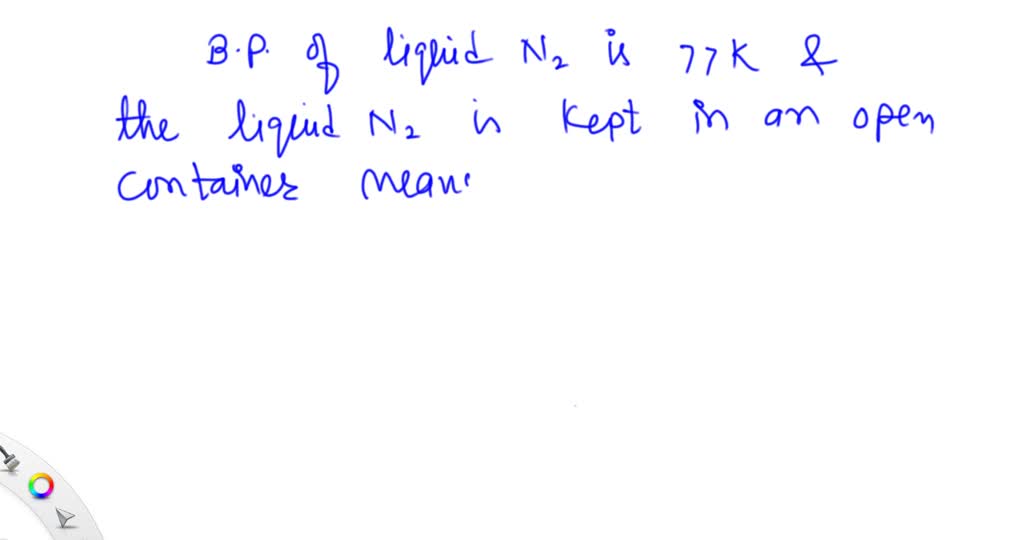 B.P. of liquid N₂ is 77K &
the liquid N₂ is kept in an open
container mean